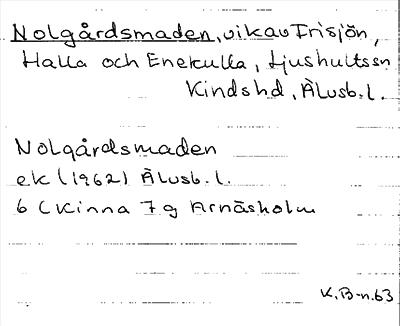 Nolgårdsmaden, vik av Frisjön,
Halla och Enekulla, Ljushultssn
Kindshd, Älvsb. l.
Nolgårdsmaden
ek (1962) Älvsb. l.
6 C Kinna 7 g Arnäsholm
K. B-n. 63